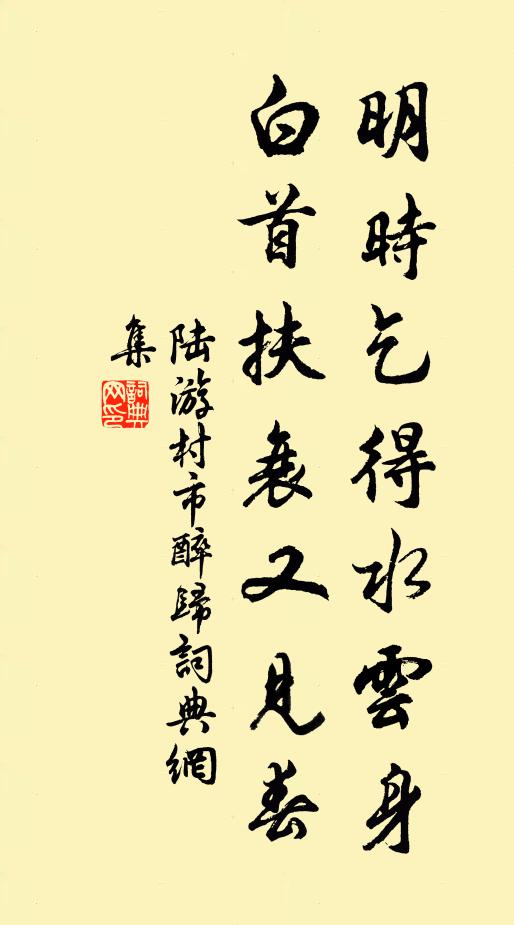 明時乞得水雲身
白首扶衰又見春
陸游村市醉歸詞典網
集
詞典
网印